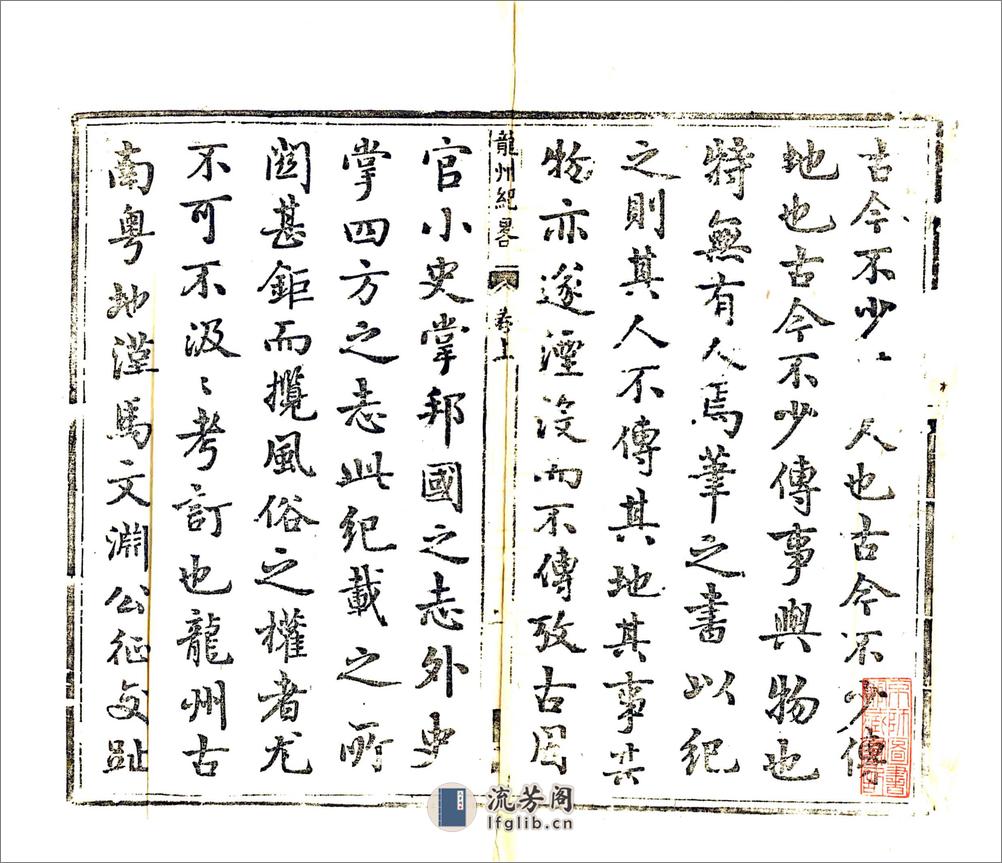 古今不少 人也古今不少傳
地也古今不少傳事與物也
特無有人焉筆之書以紀
之則其人不傳其地其事其
物亦遂湮沒而不傳攷古周
龍州紀畧
卷上
一
官小史掌邦國之志外史
掌四方之志此紀載之所
関甚鉅而攬風俗之權者尤
不可不汲〻考訂也龍州古
南粵地漢馬文淵公征交趾
京師圖書
流芳阁
lfglib.cn